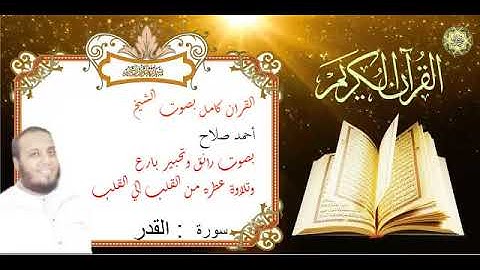 القرآن الكريم
القران كامل بصوت الشيخ
أحمد صلاح
بصوت رائق وتحبير بارع
وتلاوة عطره من القلب الي القلب
سورة : القدر